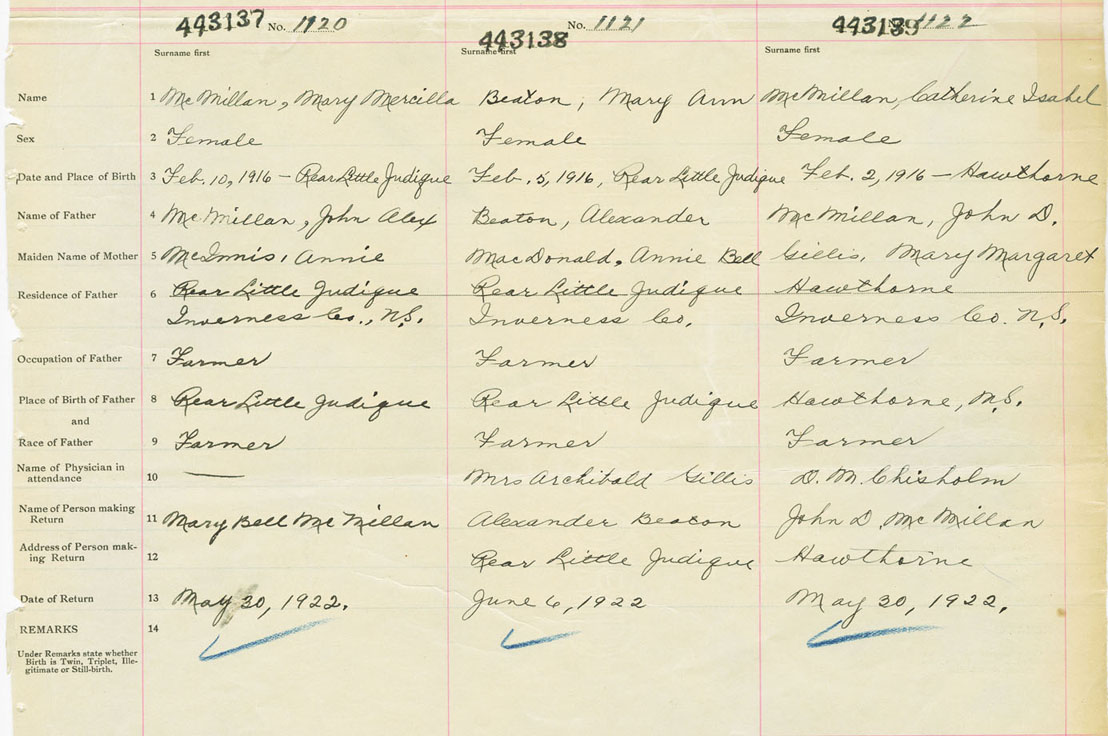 443137 No. 1120
443138 No. 1121
443139 No. 1122
Surname first Surname first Surname first
Name 1 McMillan, Mary Mercilla Beaton, Mary Ann McMillan, Catherine Isabel
Sex 2 Female Female Female
Date and Place of Birth 3 Feb. 10, 1916 – Rear Little Judique Feb. 5, 1916, Rear Little Judique Feb. 2, 1916 – Hawthorne
Name of Father 4 McMillan, John Alex Beaton, Alexander McMillan, John D.
Maiden Name of Mother 5 McInnis, Annie MacDonald, Annie Bell Gillis, Mary Margaret
Residence of Father 6 Rear Little Judique Rear Little Judique Hawthorne
Inverness Co., N.S. Inverness Co. Inverness Co. N.S.
Occupation of Father 7 Farmer Farmer Farmer
Place of Birth of Father 8 Rear Little Judique Rear Little Judique Hawthorne, N.S.
and
Race of Father 9 Farmer Farmer Farmer
Name of Physician in
attendance 10 — Mrs Archibald Gillis D. M. Chisholm
Name of Person making
Return 11 Mary Bell McMillan Alexander Beaton John D. McMillan
Address of Person mak-
ing Return 12 Rear Little Judique Hawthorne
Date of Return 13 May 30, 1922. June 6, 1922 May 30, 1922.
REMARKS 14
Under Remarks state whether
Birth is Twin, Triplet, Ille-
gitimate or Still-birth.